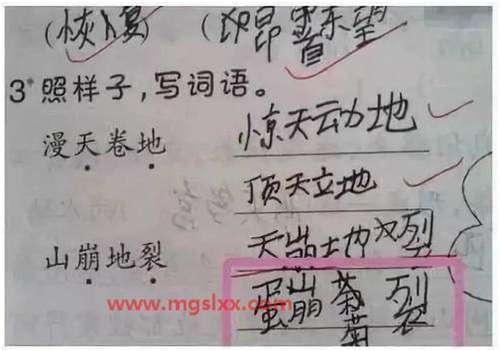 (恢复) (昂首东望)
3*照样子，写词语。
漫天卷地 惊天动地
顶天立地
山崩地裂 天崩地裂
蛋崩菊裂
菊
www.mgslxx.com